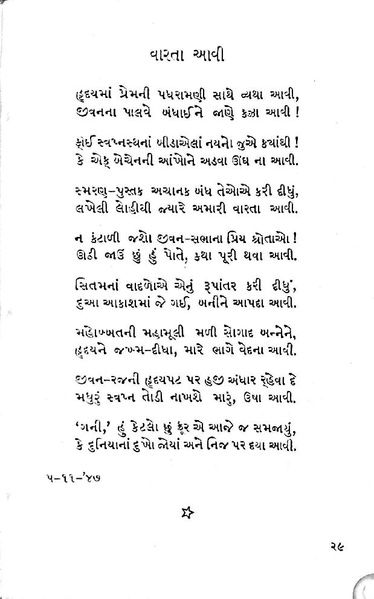 વારતા આવી
હૃદયમાં પ્રેમની પધરામણી સાથે વ્યથા આવી,
જીવનના પાલવે બંધાઈને જાણે કઝા આવી !
કોઈ સ્વપ્નસ્થનાં બીડાએલાં નયનો જુએ ક્યાંથી !
કે એક બેચેનની આંખોને અડવા ઊંઘ ના આવી.
સ્મરણ–પુસ્તક અચાનક બંધ તેઓએ કરી દીધું,
લખેલી લોહીથી જ્યારે અમારી વારતા આવી.
ન કંટાળી જશો જીવન-સભાના પ્રિય શ્રોતાઓ !
ઊઠી જાઉં છું હું પોતે, કથા પૂરી થવા આવી.
સિતમનાં વાદળોએ એનું રૂપાંતર કરી દીધું,
દુઆ આકાશમાં જે ગઈ, બનીને આપદા આવી.
મહોબ્બતની મહામૂલી મળી સોગાદ બન્નેને,
હૃદયને જખ્મ–દીધા, મારે ભાગે વેદના આવી.
જીવન–રજની હૃદયપટ પર હજી અંધાર રહેવા દે
મધુરું સ્વપ્ન તોડી નાખશે મારું, ઉષા આવી.
'ગની,' હું કેટલો છું ક્રૂર એ આજે જ સમજાયું,
કે દુનિયાનાં દુખો જોયાં અને નિજ પર દયા આવી.
૫–૧૧–'૪૭
૨૯